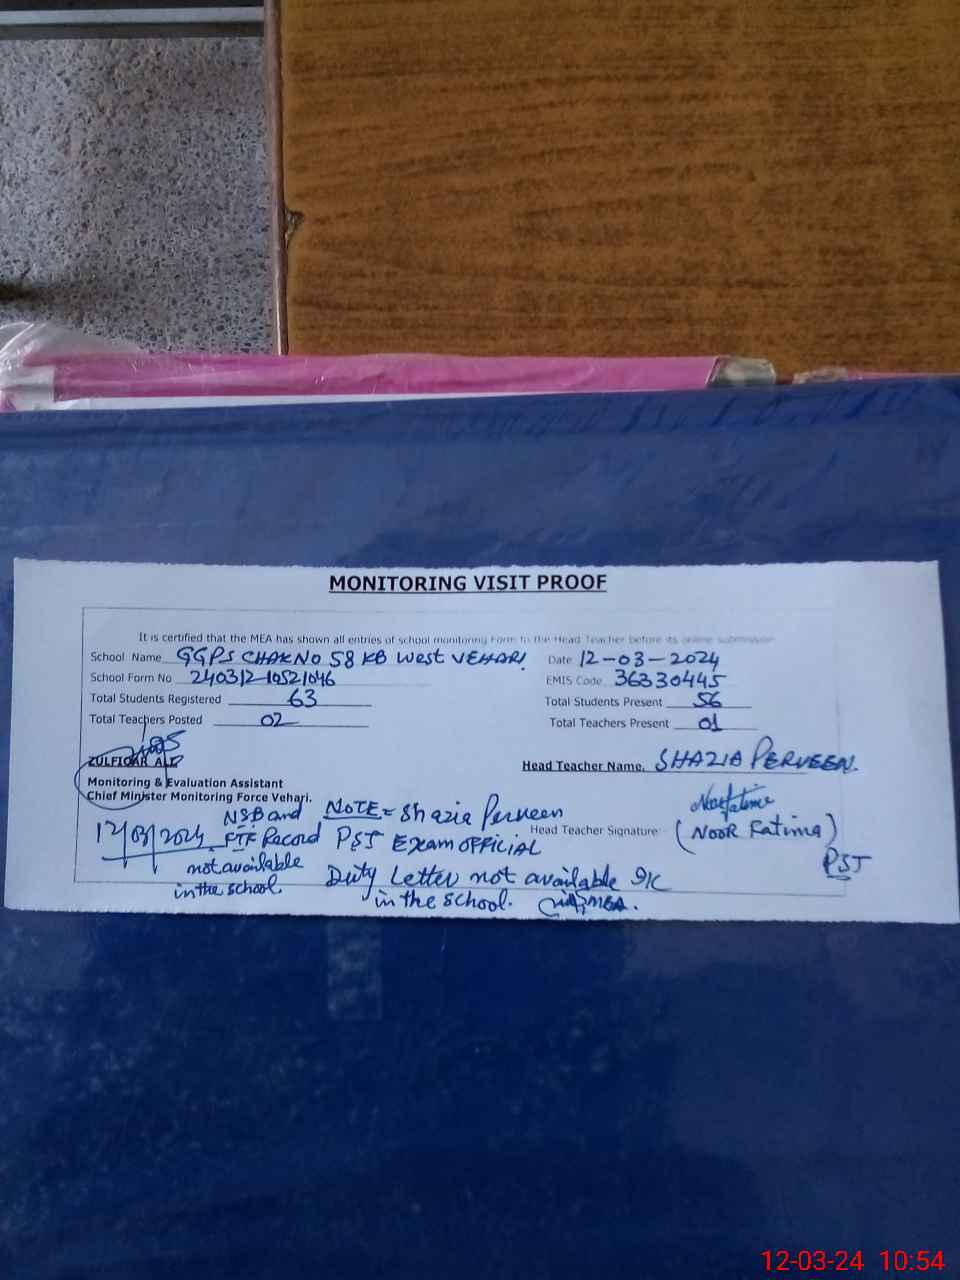 MONITORING VISIT PROOF
It is certified that the MEA has shown all entries of school monitoring Form to the Head Teacher before its online submission
School Name GGPS CHAK NO 58 KB West VEHARI Date 12-03-2024
School Form No 240312-10521046 EMIS Code 36330445
Total Students Registered 63 Total Students Present 56
Total Teachers Posted 02 Total Teachers Present 01
ZULFIQAR ALI Head Teacher Name. SHAZIA PERVEEN
Monitoring & Evaluation Assistant
Chief Minister Monitoring Force Vehari.
12/03/2024
NSB and
FTF Record
not available
in the school.
NOTE = Shazia Perveen
PST Exam OFFICIAL
Duty Letter not available
in the school. MEA.
Head Teacher Signature
Noor Fatima
(NOOR Fatima)
PST
12-03-24 10:54